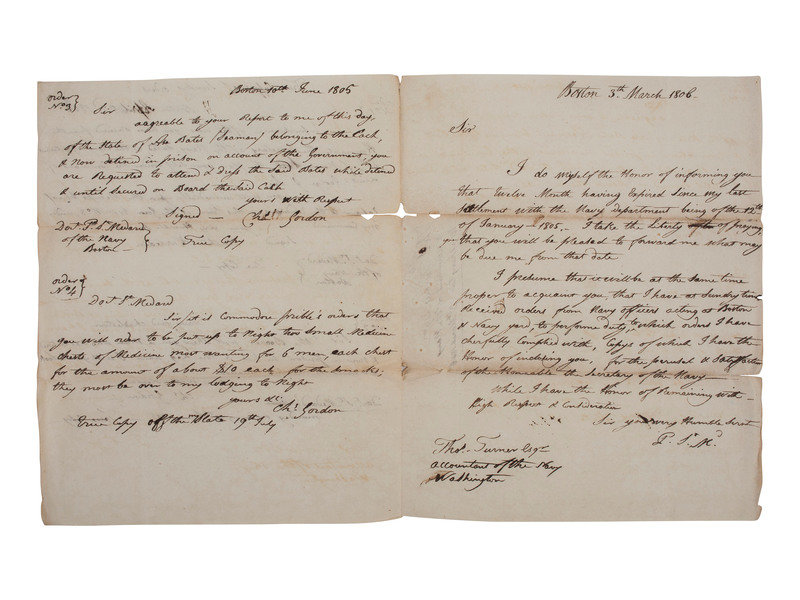 order
No 3
Boston 10th June 1805
Sir
aagreable to your Report to me of this day
of the State of Bates (Seaman) belonging to the
& Now detined in prison on account of the Government, you
are Requested to attend & dress the Said Bates while detined
& until secured on Board the
yours with Respect
Signed — Chs. Gordon
Doct P. St. Medard
of the Navy
Boston
True Copy
order
No 4
Doct St Medard
Sir, it is Commodore preble's orders that
you will order to be put up to Night two Small Medicine
Chests of Medicine most wanting for 6 men each chest
for the amount of about $10 each for the smacks;
they must be over to my lodging to Night
yours &c.
Chs. Gordon
True Copy off the Slate 19th July
Boston 3th March 1806
Sir
I do myself the Honor of informing you
that twelve Month having Expired Since my last
settlement with the Navy department being of the 12th
of January 1805. I take the Liberty of praying
that you will be pleased to forward me what may
be due me from that date
I presume that it will be at the same time
proper to acquaint you that I have at Sundry time
Received orders from Navy officers acting at Boston
& Navy yard, to performe duty, to which orders I have
chearfully Complied with, Copys of which I have the
Honor of inclosing you, for the perusal & Satisfaction
of the Honnable the Secretary of the Navy
while I have the Honor of Remaining with
High Respect & Consideration
Sir your very Humble Servt
P. St. Md.
Thos. Turner Esqr.
accountant of the Navy
Washington